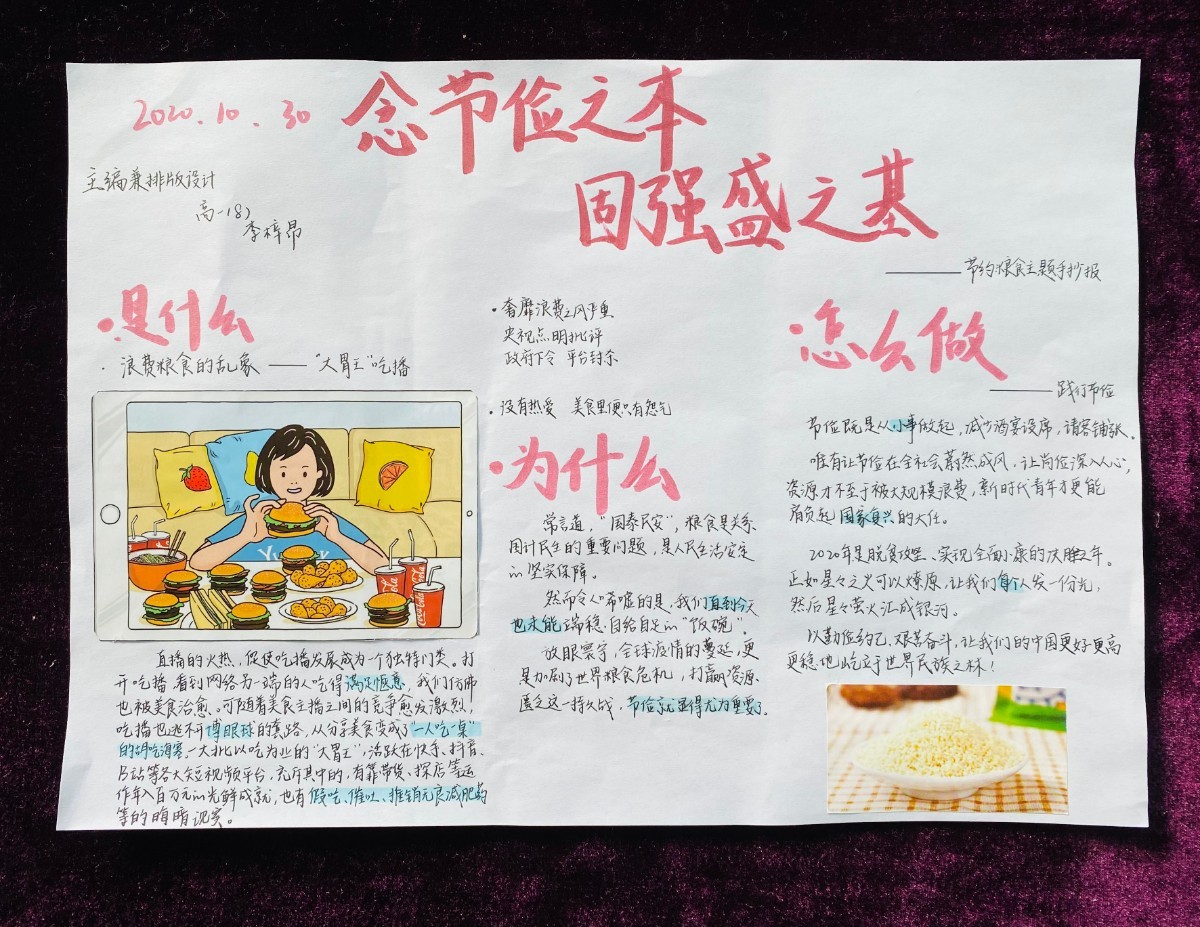 2020.10.30
念节俭之本
固强盛之基
主编兼排版设计
高一(8)
李梓昂
———节约粮食主题手抄报
·是什么
·浪费粮食的乱象——“大胃王”吃播
直播的火热,促使吃播发展成为一个独特门类。打
开吃播,看到网络另一端的人吃得满足惬意,我们仿佛
也被美食治愈。可随着美食主播之间的竞争愈发激烈,
吃播也逃不开博眼球的套路,从分享美食变成了“一人吃一桌”
的胡吃海塞。一大批以吃为业的“大胃王”,活跃在快手、抖音、
B站等各大短视频平台,充斥其中的,有靠带货、探店等运
作年入百万元的光鲜成就,也有假吃、催吐、推销无良减肥药
等的晦暗现实。
·奢靡浪费之风严重
央视点明批评
政府下令 平台封杀
·没有热爱 美食里便只有怨气
·为什么
常言道,“国泰民安”,粮食是关系
国计民生的重要问题,是人民生活安定
的坚实保障。
然而令人唏嘘的是,我们直到今天
也未能端稳自给自足的“饭碗”。
放眼寰宇,全球疫情的蔓延,更
是加剧了世界粮食危机,打赢资源
匮乏这一持久战,节俭就显得尤为重要了。
·怎么做
———践行节俭
节俭既是从小事做起,减少酒宴设席,请客铺张。
唯有让节俭在全社会蔚然成风,让尚俭深入人心,
资源才不至于被大规模浪费,新时代青年才更能
肩负起国家复兴的大任。
2020年是脱贫攻坚、实现全面小康的决胜之年。
正如星星之火可以燎原,让我们每个人发一份光,
然后星星萤火汇成银河。
以勤俭约己、艰苦奋斗,让我们的中国更好更高
更稳地屹立于世界民族之林!